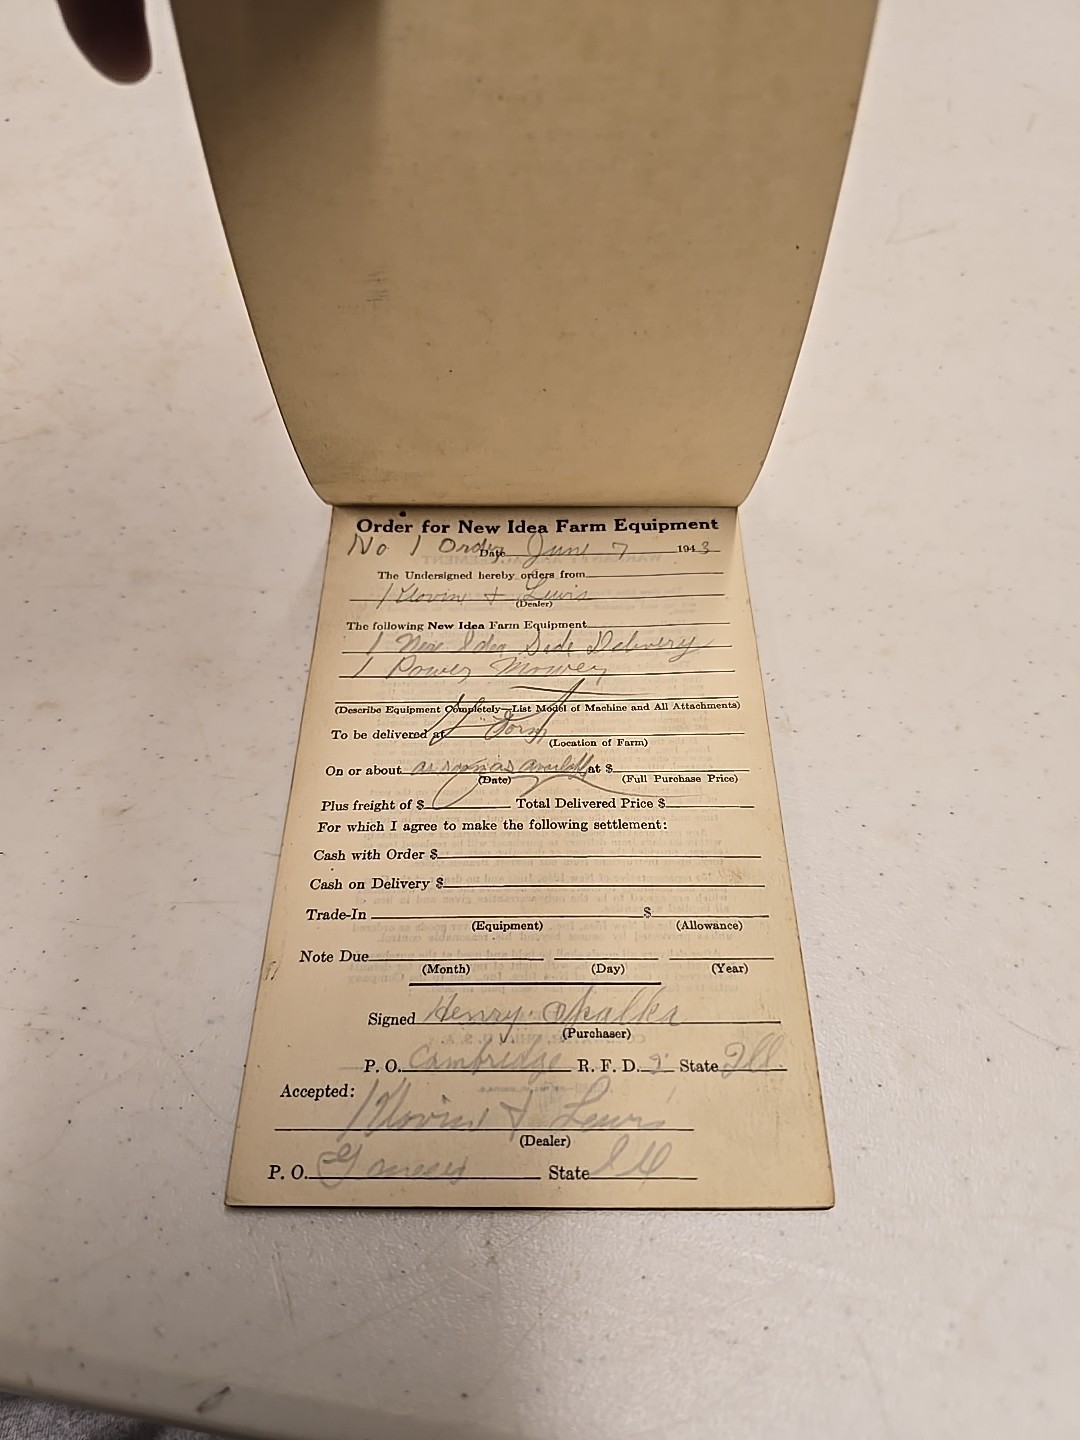 Order for New Idea Farm Equipment
No 1 Order Date June 7 1943
The Undersigned hereby orders from
& Lewis
(Dealer)
The following New Idea Farm Equipment
1 New Idea Side Delivery
1 Power Mower
(Describe Equipment Completely—List Model of Machine and All Attachments)
To be delivered at Farm
(Location of Farm)
On or about as soon as available at $
(Date) (Full Purchase Price)
Plus freight of $ Total Delivered Price $
For which I agree to make the following settlement:
Cash with Order $
Cash on Delivery $
Trade-In $
(Equipment) (Allowance)
Note Due
(Month) (Day) (Year)
Signed Henry Skalka
(Purchaser)
P. O. Cambridge R. F. D. 2 State Ill.
Accepted:
& Lewis
(Dealer)
P. O. Geneseo State Ill